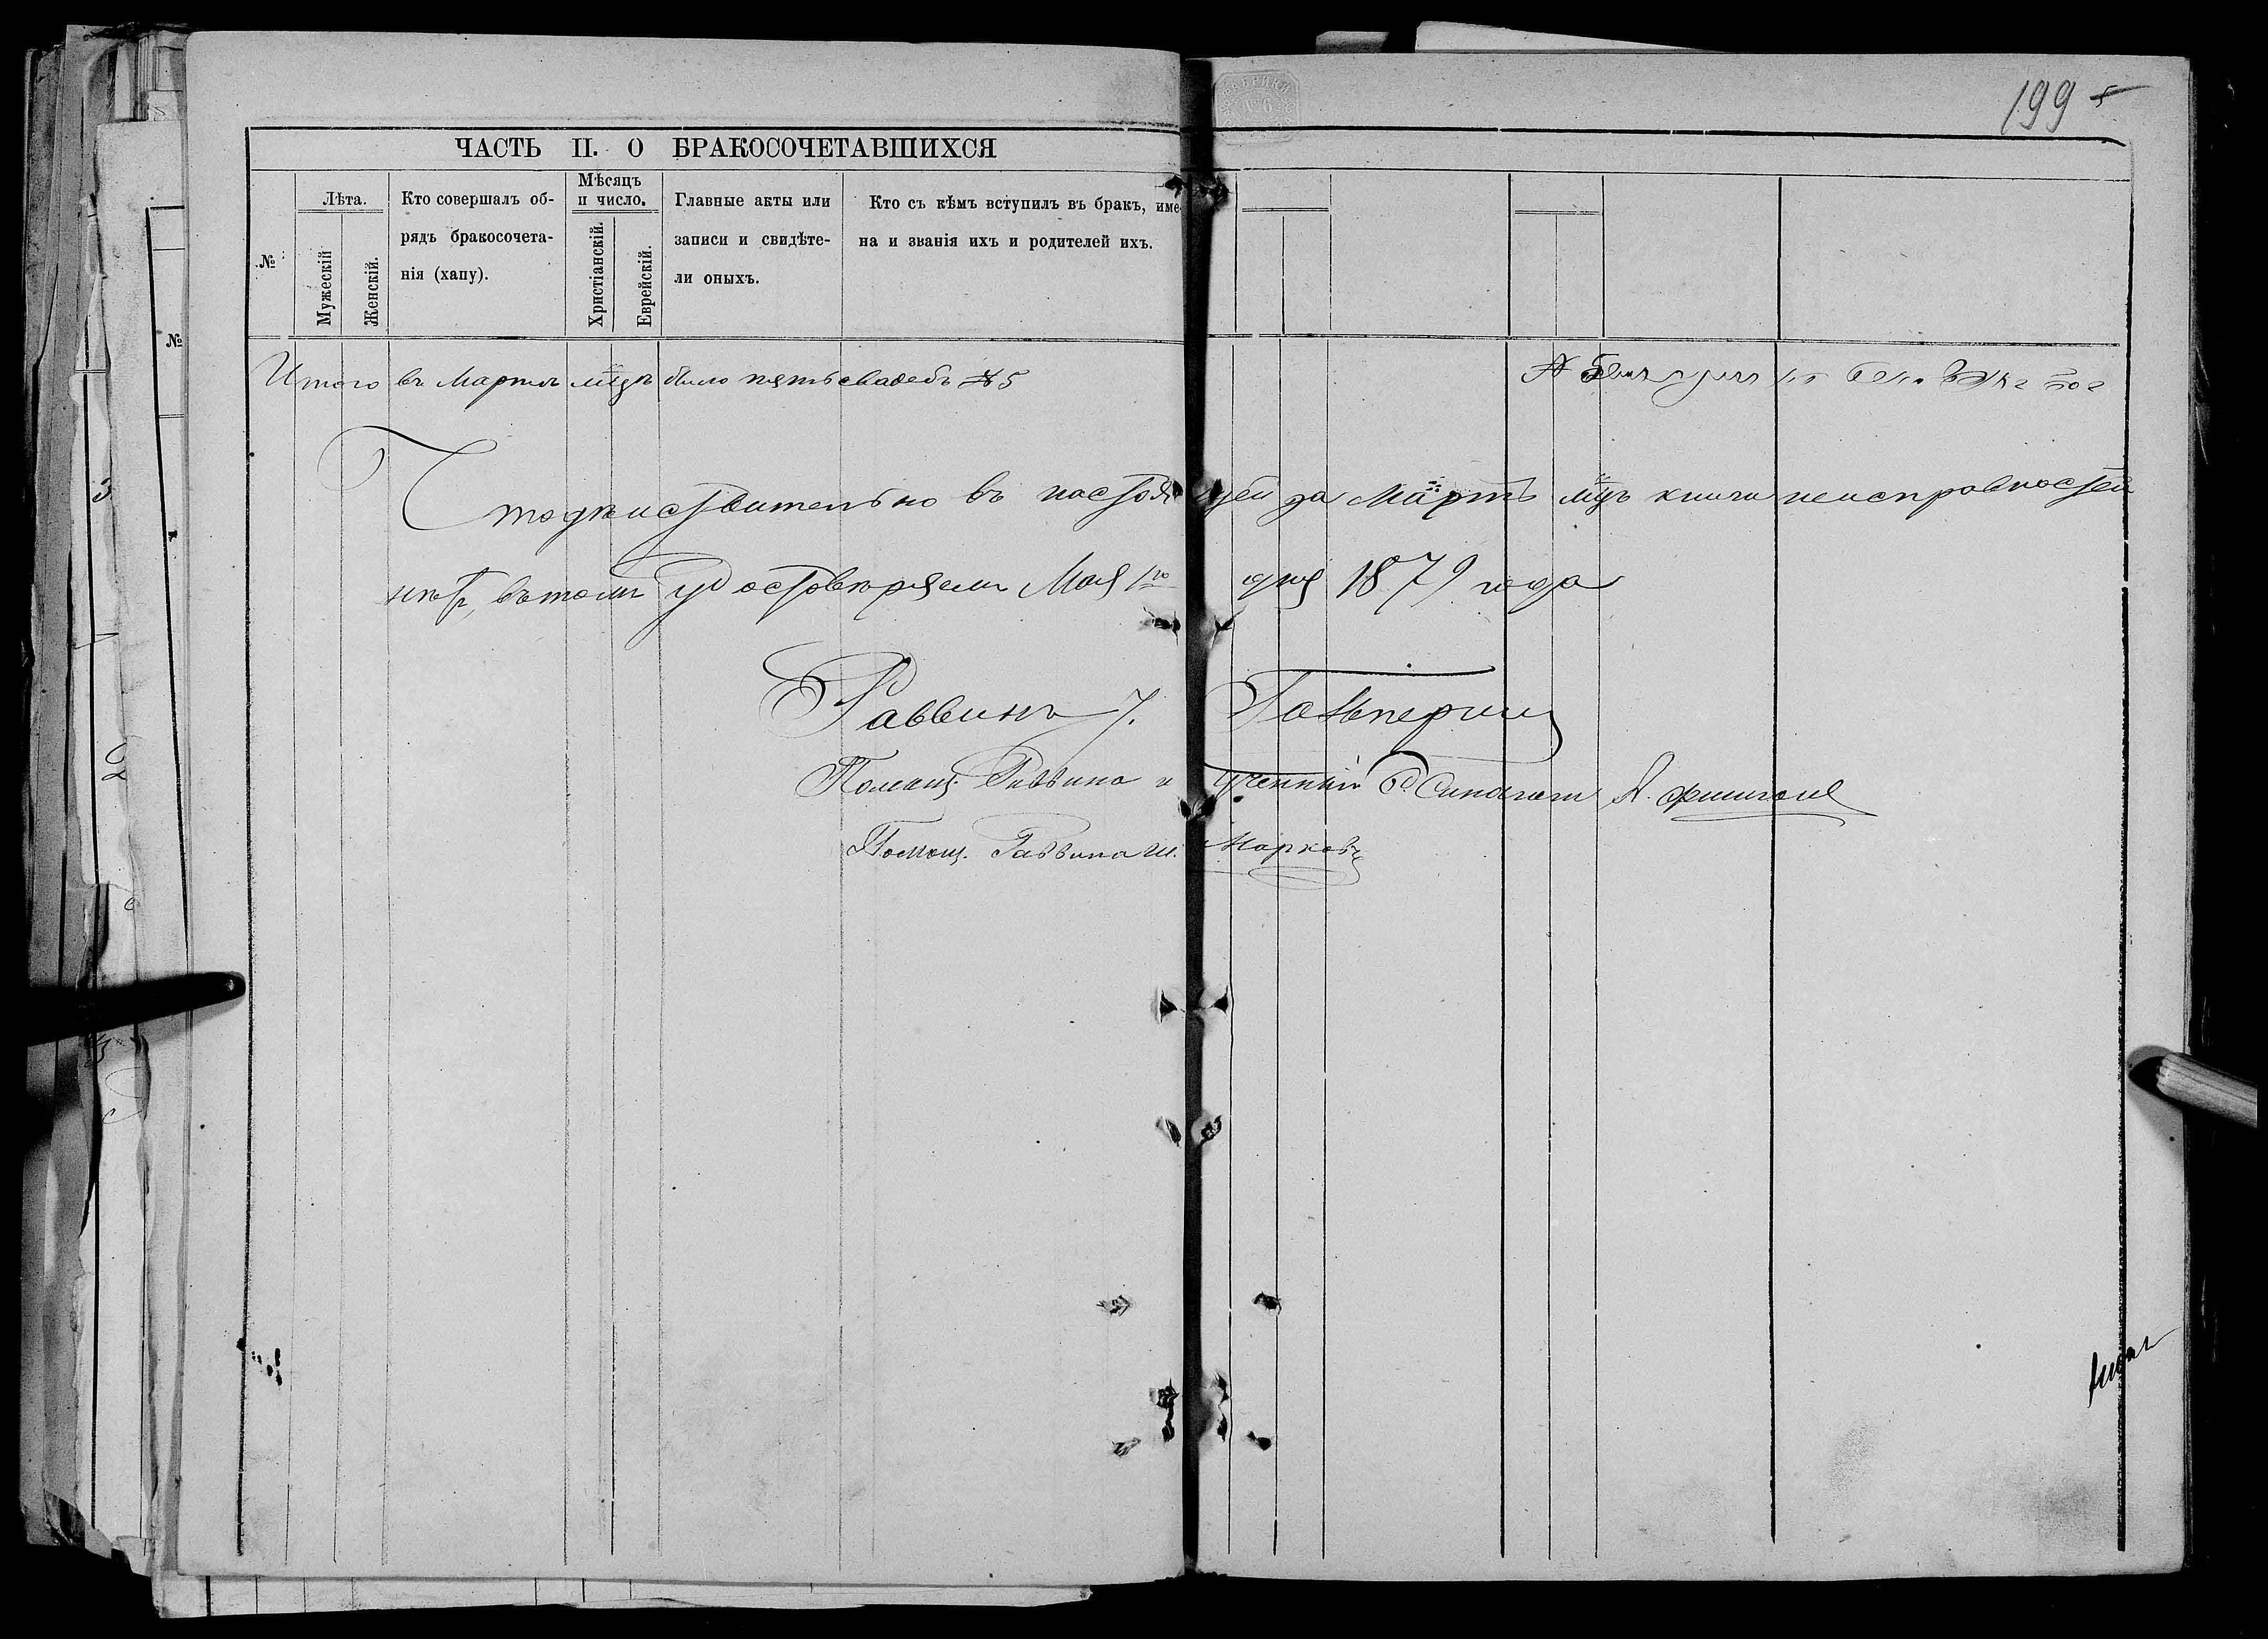 199
ЧАСТЬ II. О БРАКОСОЧЕТАВШИХСЯ
№
Лѣта.
Мужескій
Женскій.
Кто совершалъ об-
рядъ бракосочета-
нія (хапу).
Мѣсяцъ
и число.
Христіанскій.
Еврейскій.
Главные акты или
записи и свидѣте-
ли оныхъ.
Кто съ кѣмъ вступилъ въ бракъ, име-
на и званія ихъ и родителей ихъ.
Итого въ Мартѣ мцѣ было пять свадебъ № 5
Что дѣйствительно въ настоящей за Мартъ мцъ книги неисправностей
нѣтъ, въ томъ удостовѣряемъ Мая 1го дня 1879 года
Раввинъ Гальперин
Помощ. Раввина и ученный Синагоги
Помощ. Раввина Ш. Марковъ